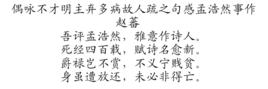 偶咏不才明主弃多病故人疏之句感孟浩然事作
赵蕃
吾评孟浩然，雅意作诗人。
死经四百载，赋诗名愈新。
爵禄岂不贵，不义宁贱贫。
身虽遭放还，未必非得亡。